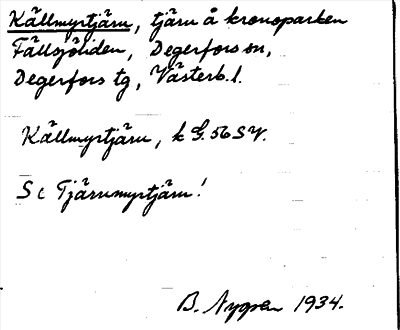 Källmyrtjärn, tjärn å kronoparken
Fällsjöliden, Degerfors sn,
Degerfors tg, Västerb. l.
Källmyrtjärn, k G. 56 SV.
Se Tjärnmyrtjärn!
B. Nygren 1934.